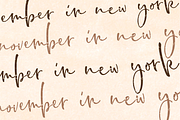 ember in new york
november in new yo
ember in new york
november in new yo